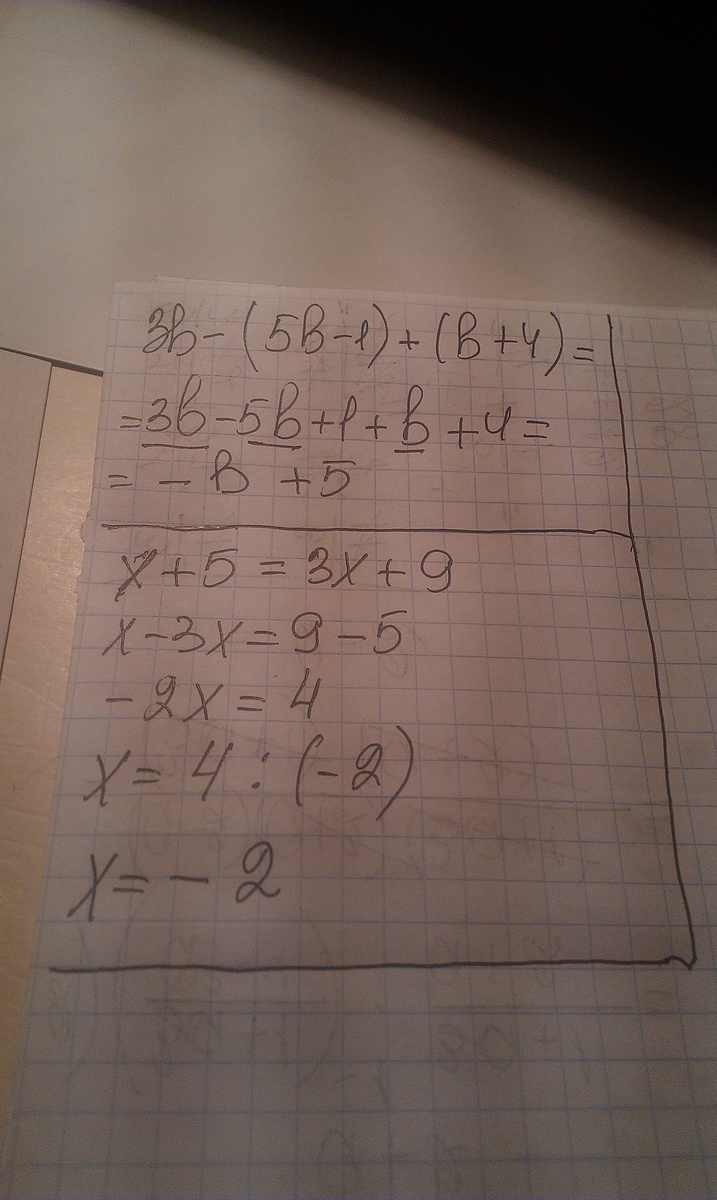 3b-(5b-1)+(b+4)=
=3b-5b+1+b+4=
= -b +5
x+5=3x+9
x-3x=9-5
-2x=4
x=4:(-2)
x=-2